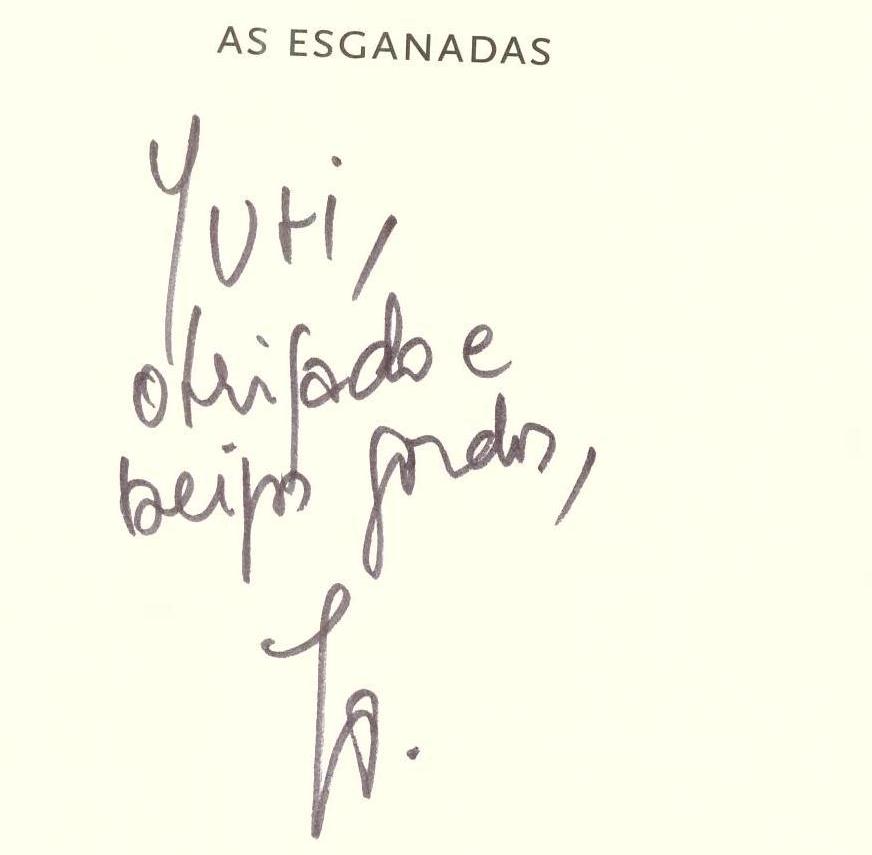 AS ESGANADAS
Yuri,
obrigado e
beijos gordos,
Jô.